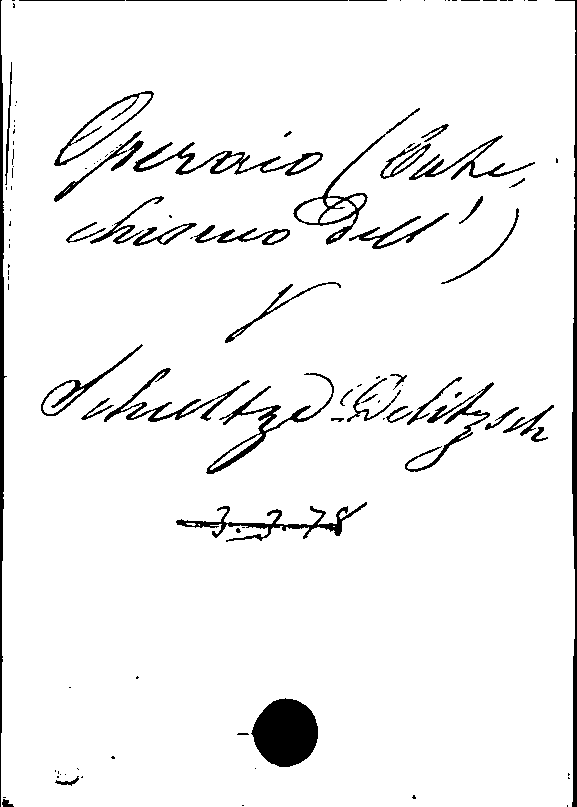 Operaio (Cate,
chismo Dell')
V
Schultze-Delitzsch
3.3.78